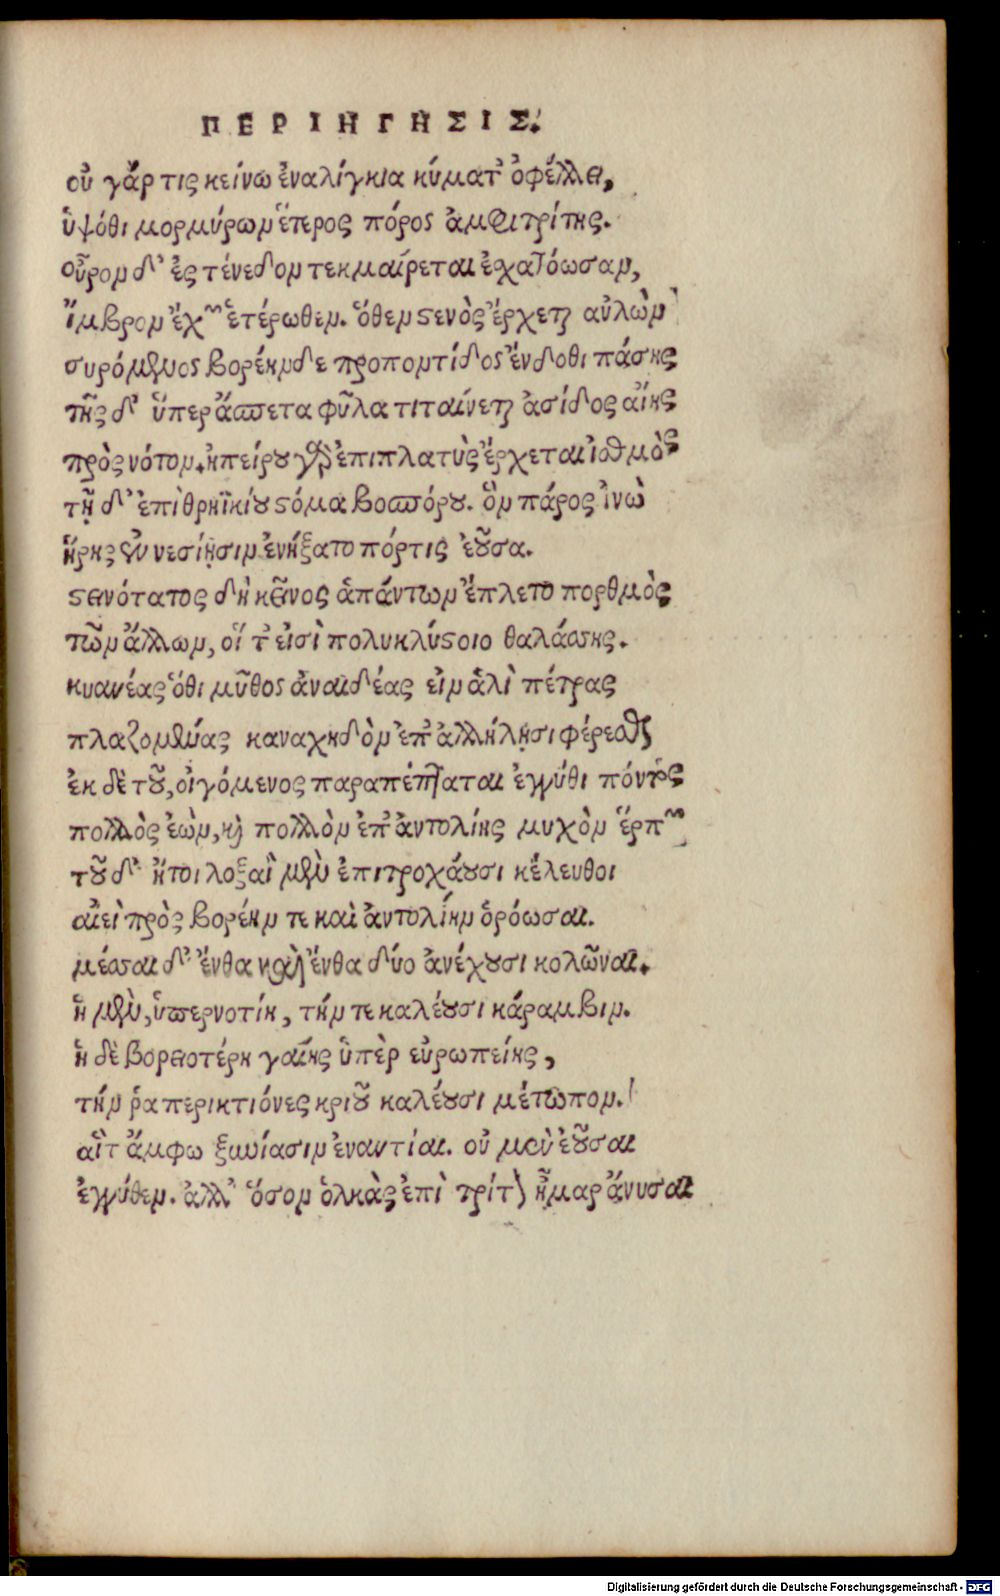 ΠΕΡΙΗΓΗΣΙΣ.
οὐ γάρ τις κείνῳ ἐναλίγκια κύματ' ὀφέλλει,
ὑψόθι μορμύρων ἕτερος πόρος ἀμφιτρίτης.
οὖρον δ' ἐς τένεδον τεκμαίρεται ἐχατόωσαν,
ἴμβρον ἔχων ἑτέρωθεν. ὅθεν στενὸς ἔρχεται αὐλὼν
συρόμενος βορέηνδε προποντίδος ἔνδοθι πάσης
τῆς δ' ὕπερ ἄσπετα φῦλα τιταίνεται ἀσίδος αἴης
πρὸς νότον. ἠπείρου γὰρ ἐπιπλατὺς ἔρχεται ἰσθμὸς
τῇ δ' ἐπὶ θρηϊκίου στόμα βοσπόρου. ὃν πάρος ἰνὼ
ἥρης ἐννεσίῃσιν ἐνήξατο πόρτις ἐοῦσα.
στεινότατος δὴ κεῖνος ἁπάντων ἔπλετο πορθμὸς
τῶν ἄλλων, οἵ τ' εἰσὶ πολυκλύστοιο θαλάσσης.
κυανέας ὅθι μῦθος ἀναιδέας εἰν ἁλὶ πέτρας
πλαζομένας καναχηδὸν ἐπ' ἀλλήλῃσι φέρεσθαι
ἐκ δὲ τοῦ, οἰγόμενος παραπέπταται ἐγγύθι πόντος
πολλὸς ἐὼν, καὶ πολλὸν ἐπ' ἀντολίης μυχὸν ἕρπων
τοῦ δ' ἤτοι λοξαὶ μὲν ἐπιτροχάουσι κέλευθοι
αἰεὶ πρὸς βορέην τε καὶ ἀντολίην ὁρόωσαι.
μέσσαι δ' ἔνθα καὶ ἔνθα δύο ἀνέχουσι κολῶναι.
ἡ μὲν, ὑπερνοτίη, τήν τε καλέουσι κάραμβιν.
ἡ δὲ βορειοτέρη γαίης ὑπὲρ εὐρωπείης,
τήν ῥα περικτιόνες κριοῦ καλέουσι μέτωπον.
αἳτ ἄμφω ξυνίασιν ἐναντίαι. οὐ μὲν ἐοῦσαι
ἐγγύθεν. ἀλλ' ὅσον ὁλκὰς ἐπὶ τρίτον ἦμαρ ἄνυσαι
Digitalisierung gefördert durch die Deutsche Forschungsgemeinschaft - DFG